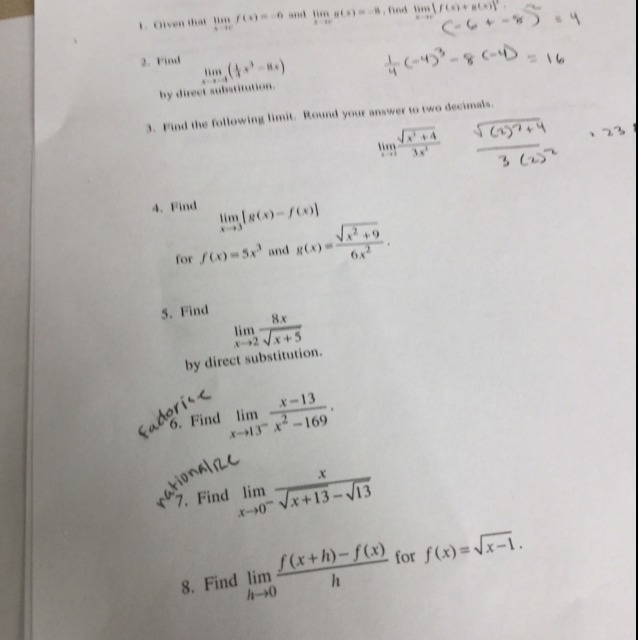 1. Given that lim f(x) = -6 and lim g(x) = -8, find lim [f(x) + g(x)]².
(-6 + -8)² = 4
2. Find
lim (1/4 x³ - 8x)
1/4 (-4)³ - 8(-4) = 16
by direct substitution.
3. Find the following limit. Round your answer to two decimals.
lim √(x² + 4) / 3x²
√((2)² + 4) / 3(2)²
.23
4. Find
lim x→3 [g(x) - f(x)]
for f(x) = 5x³ and g(x) = √(x² + 9) / 6x².
5. Find
lim x→2 8x / √(x + 5)
by direct substitution.
factorise
6. Find lim x→13⁻ (x - 13) / (x² - 169).
rationalize
7. Find lim x→0⁻ x / (√(x + 13) - √13)
8. Find lim h→0 (f(x + h) - f(x)) / h for f(x) = √(x - 1).